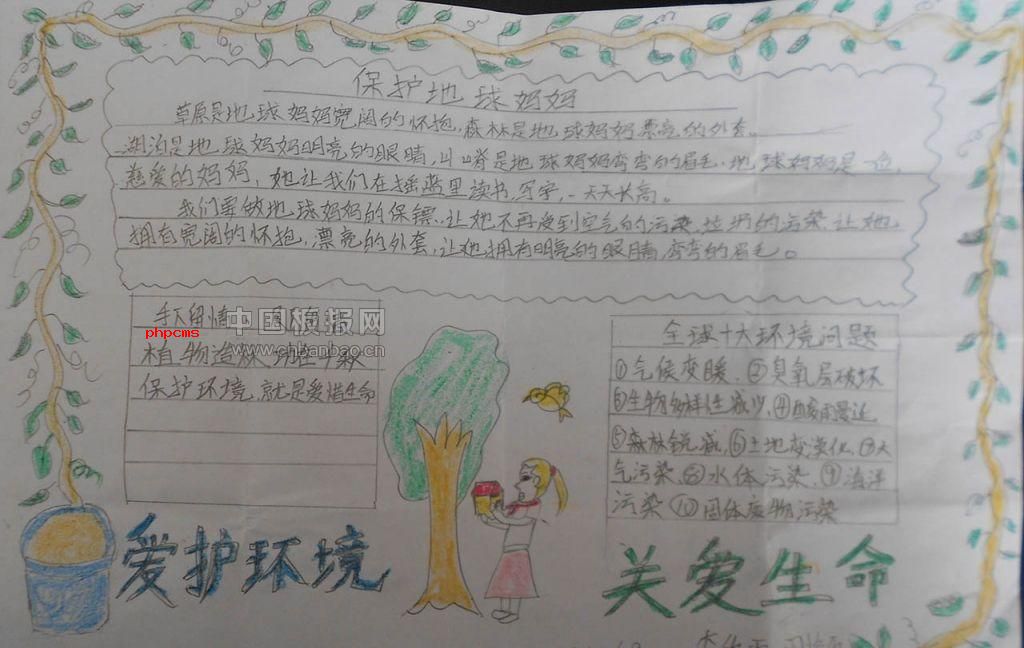 保护地球妈妈
草原是地球妈妈宽阔的怀抱,森林是地球妈妈漂亮的外套。
湖泊是地球妈妈明亮的眼睛,山脊是地球妈妈弯弯的眉毛.地球妈妈是一位
慈爱的妈妈,她让我们在摇篮里读书,写字,一天天长高。
我们要做地球妈妈的保镖.让她不再受到空气的污染.垃圾的污染.让她
拥有宽阔的怀抱,漂亮的外套,让她拥有明亮的眼睛,弯弯的眉毛。
手下留情
phpcms
中国板报网
www.chbanbao.cn
植物造
保护环境,就是爱惜生命
全球十大环境问题
①气候变暖.②臭氧层破坏
③生物多样性减少.④酸雨漫延
⑤森林锐减,⑥土地荒漠化.⑦大
气污染.⑧水体污染.⑨海洋
污染⑩固体废物污染
爱护环境
关爱生命